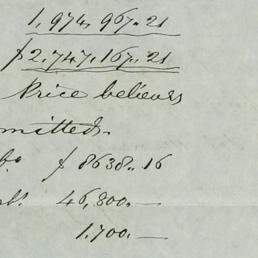 1,974,967.21
f 2,747,167.21
Price believers
mitteds.
bo f 8638..16
46,800.—
1.700.—